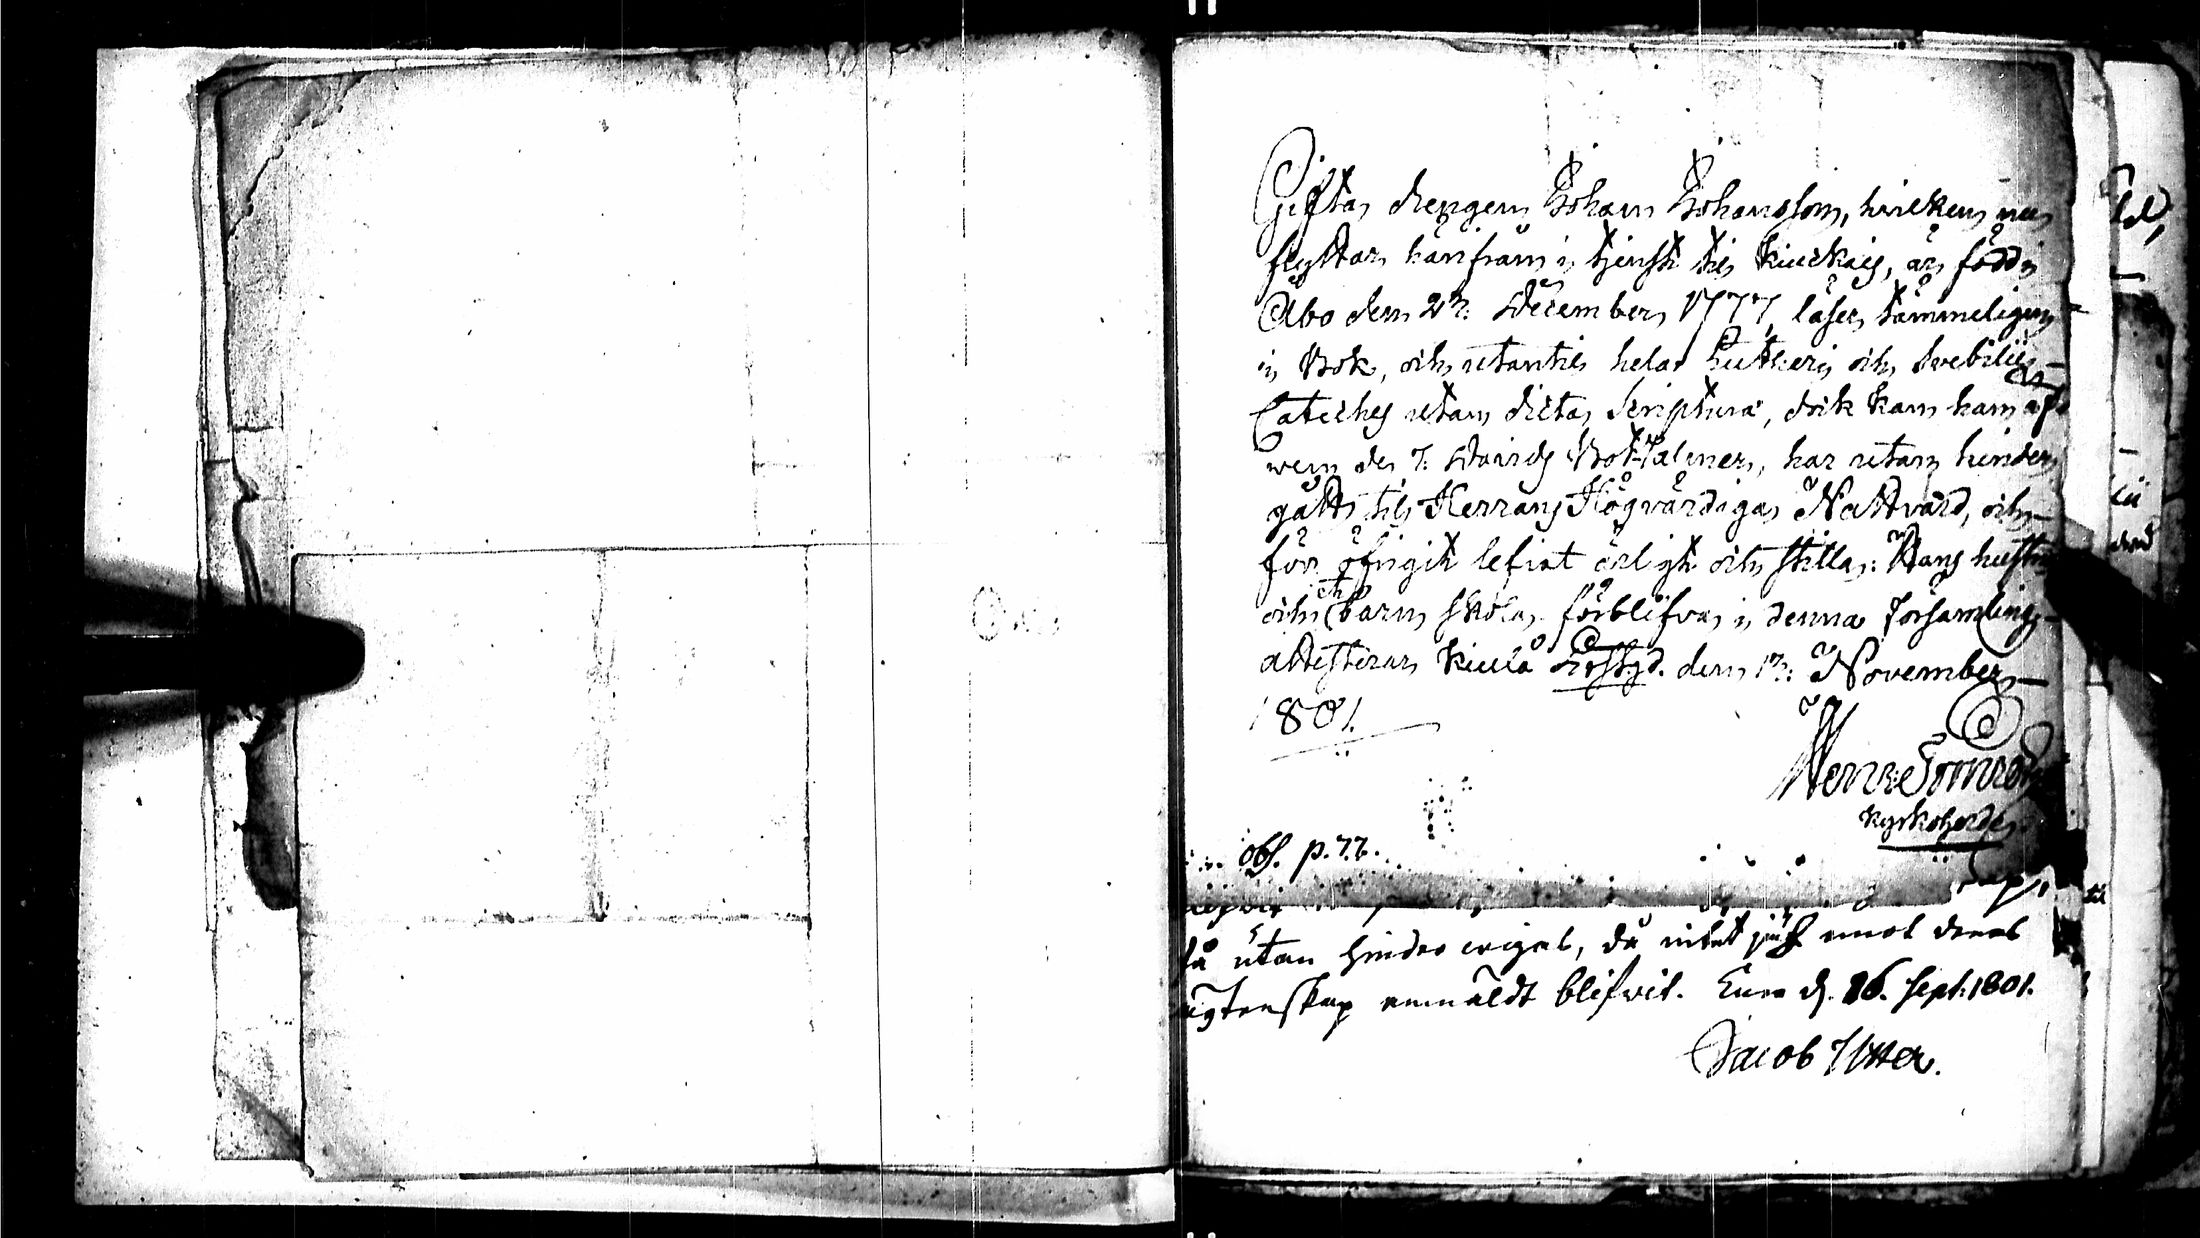 Gifta drengen Johan Johansson, hvilken nu
flyttar härifrån i tjenst til Kiuckais, är född i
Åbo den 27: December 1777, läser tämmeligen
i Bok, och utantil hela Lutheri och Svebilii
Cateches utan dicta Scripturæ, dock kan han af
wen de 7: Davids Bot-Psalmer, har utan hinder
gått til Herrans Högvärdiga Nattvard, och
för öfrigit lefvat ärligt och stilla: Hans hustru
och ett barn skola förblifva i denna Församling
attesterar Kiula Prstgd. den 17: November
1801.
Kyrkoherde
obs. p. 77.
så utan hinder wigas, då intet jäf emot deras
ägtenskap anmäldt blifwit. Eura d. 26. Sept. 1801.
Jacob Utter.